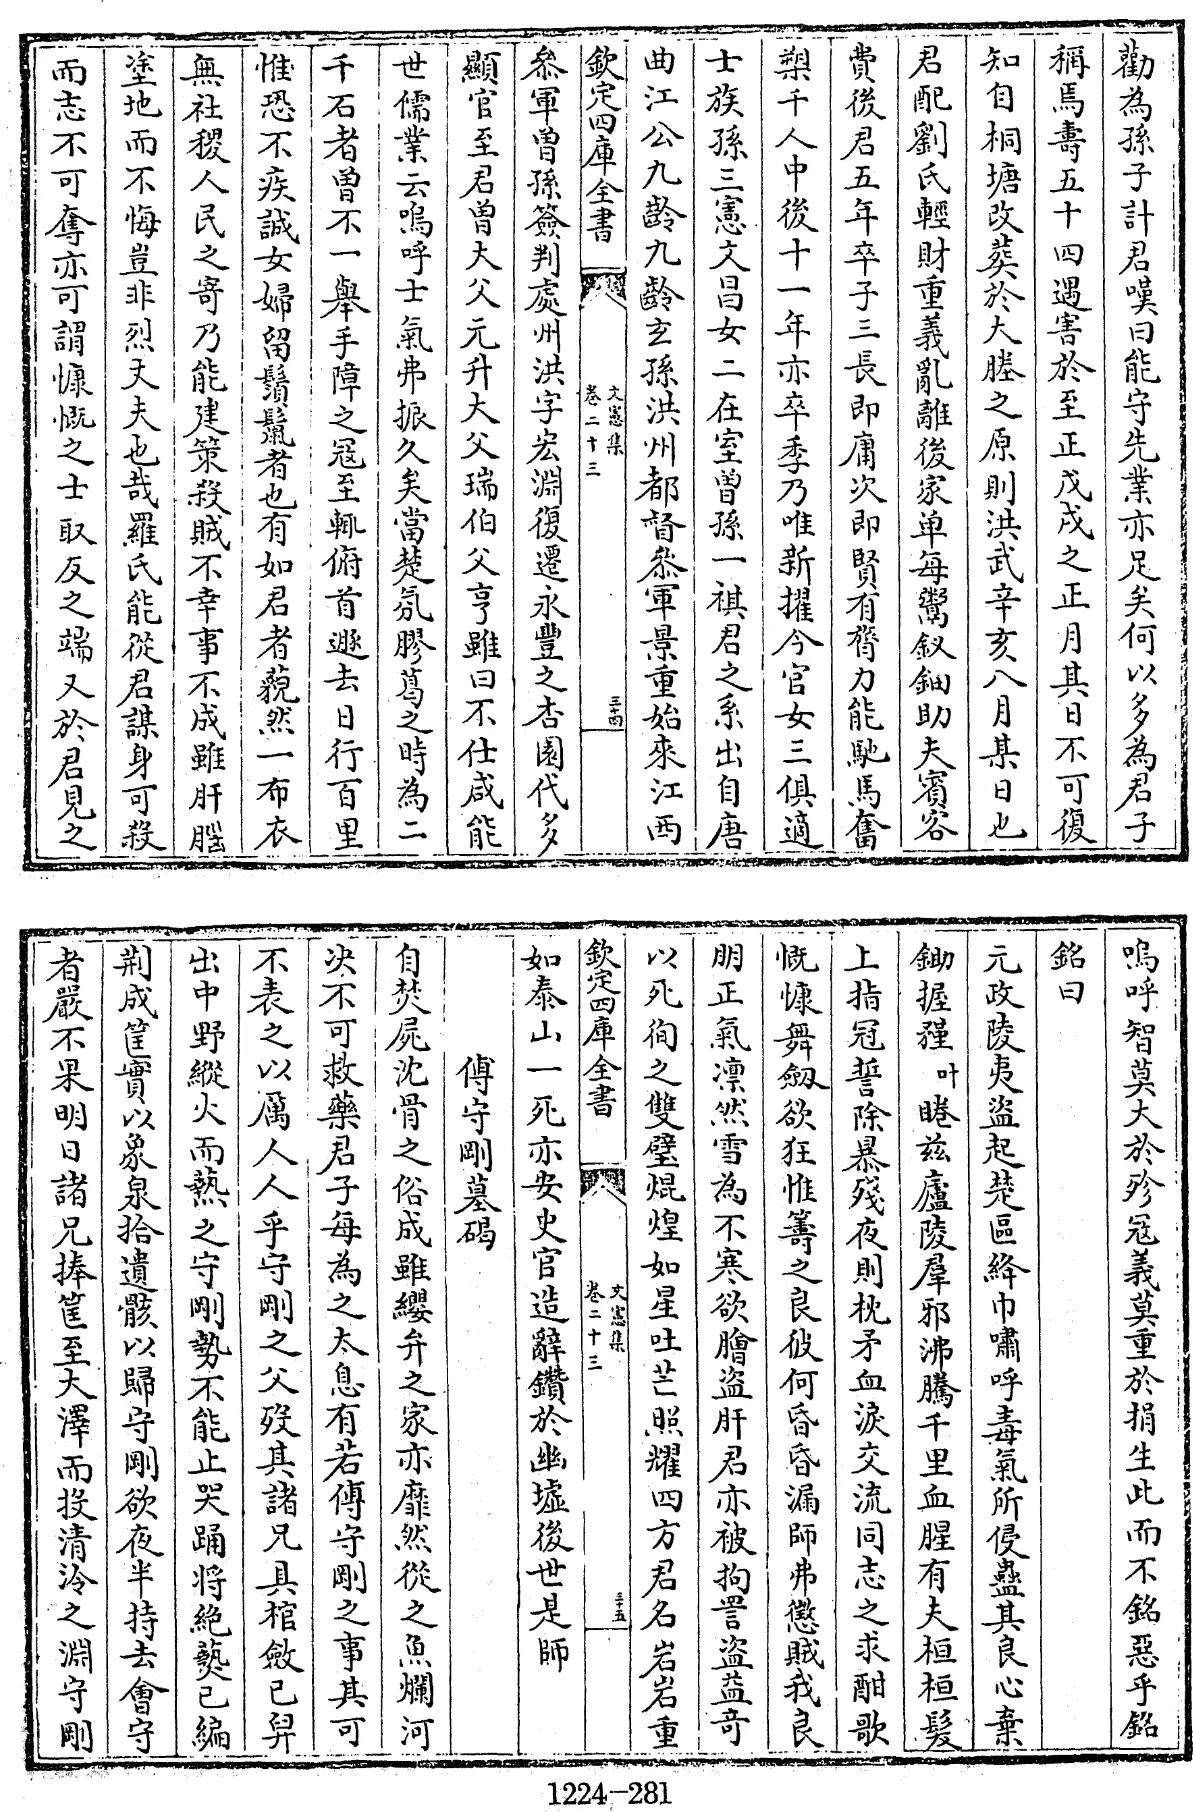 勸為孫子計君嘆曰能守先業亦足矣何以多為君子
稱焉壽五十四遇害於至正戊戌之正月其日不可復
知自桐塘改葬於大塍之原則洪武辛亥八月某日也
君配劉氏輕財重義亂離後家单每鬻釵鈿助夫賓客
費後君五年卒子三長即庸次即賢有膂力能馳馬奮
槊千人中後十一年亦卒季乃唯新擢今官女三俱適
士族孫三憲文昌女二在室曾孫一祺君之系出自唐
曲江公九齡九齡玄孫洪州都督叅軍景重始來江西
欽定四庫全書
文憲集
卷二十三
三十四
叅軍曾孫簽判處州洪字宏淵復遷永豐之杏園代多
顯官至君曾大父元升大父瑞伯父亨雖曰不仕咸能
世儒業云嗚呼士氣弗振久矣當楚氛膠葛之時為二
千石者曾不一舉手障之冦至輒俯首遯去日行百里
惟恐不疾誠女婦留鬚鬛者也有如君者藐然一布衣
無社稷人民之寄乃能建策殺賊不幸事不成雖肝腦
塗地而不悔豈非烈丈夫也哉羅氏能從君謀身可殺
而志不可奪亦可謂慷慨之士取友之端又於君見之
嗚呼智莫大於殄冦義莫重於捐生此而不銘惡乎銘
銘曰
元政陵夷盗起楚區絳巾嘯呼毒氣所侵蠱其良心棄
鋤握䅣叶睠兹廬陵羣邪沸騰千里血腥有夫桓桓髮
上指冠誓除暴殘夜則枕矛血淚交流同志之求酣歌
慨慷舞劔欲狂惟籌之良彼何昏昏漏師弗懲賊我良
朋正氣凛然雪為不寒欲膾盗肝君亦被拘詈盗益奇
以死徇之雙璧焜煌如星吐芒照耀四方君名岩岩重
欽定四庫全書
文憲集
卷二十三
三十五
如泰山一死亦安史官造辭鑽於幽墟後世是師
傅守剛墓碣
自焚屍沈骨之俗成雖纓弁之家亦靡然從之魚爛河
決不可救藥君子每為之太息有若傅守剛之事其可
不表之以厲人人乎守剛之父歿其諸兄具棺斂已舁
出中野縱火而爇之守剛勢不能止哭踊将絶爇已編
荆成筐實以象泉拾遺骸以歸守剛欲夜半持去會守
者嚴不果明日諸兄捧筐至大澤而投清泠之淵守剛
1224-281